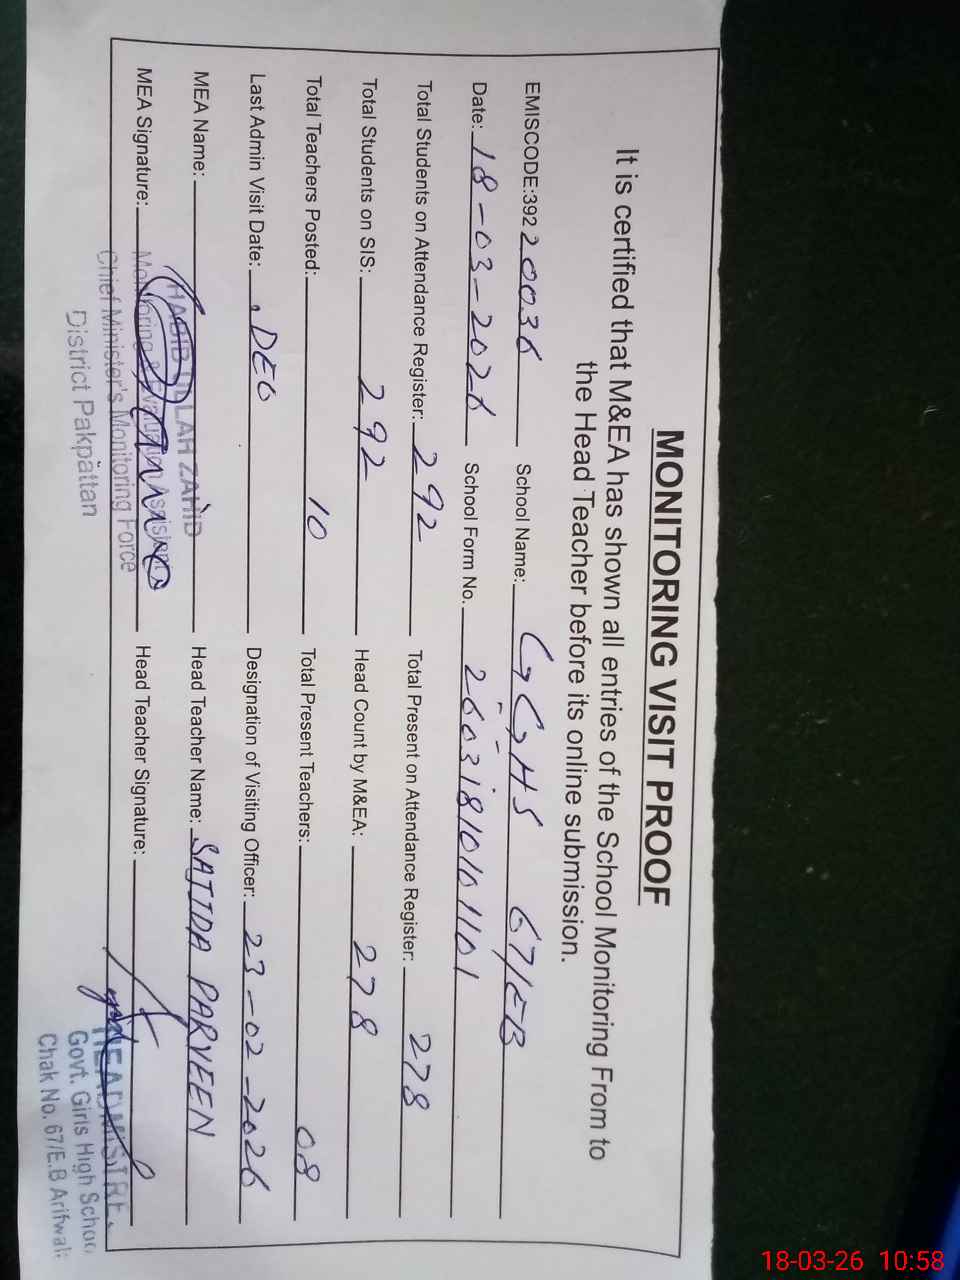 MONITORING VISIT PROOF
It is certified that M&EA has shown all entries of the School Monitoring From to
the Head Teacher before its online submission.
EMISCODE:392 20036 School Name: GGHS 67/EB
Date: 18-03-2026 School Form No. 260318101101
Total Students on Attendance Register: 292 Total Present on Attendance Register: 278
Total Students on SIS: 292 Head Count by M&EA: 278
Total Teachers Posted: 10 Total Present Teachers: 08
Last Admin Visit Date: DEO Designation of Visiting Officer: 23-02-2026
MEA Name: HABIB ULLAH ZAHID Head Teacher Name: SAJIDA PARVEEN
MEA Signature: Head Teacher Signature:
Monitoring & Evaluation Assistant
Chief Minister's Monitoring Force
District Pakpattan
HEADMISTRE
Govt. Girls High School
Chak No. 67/E.B Arifwala
18-03-26 10:58